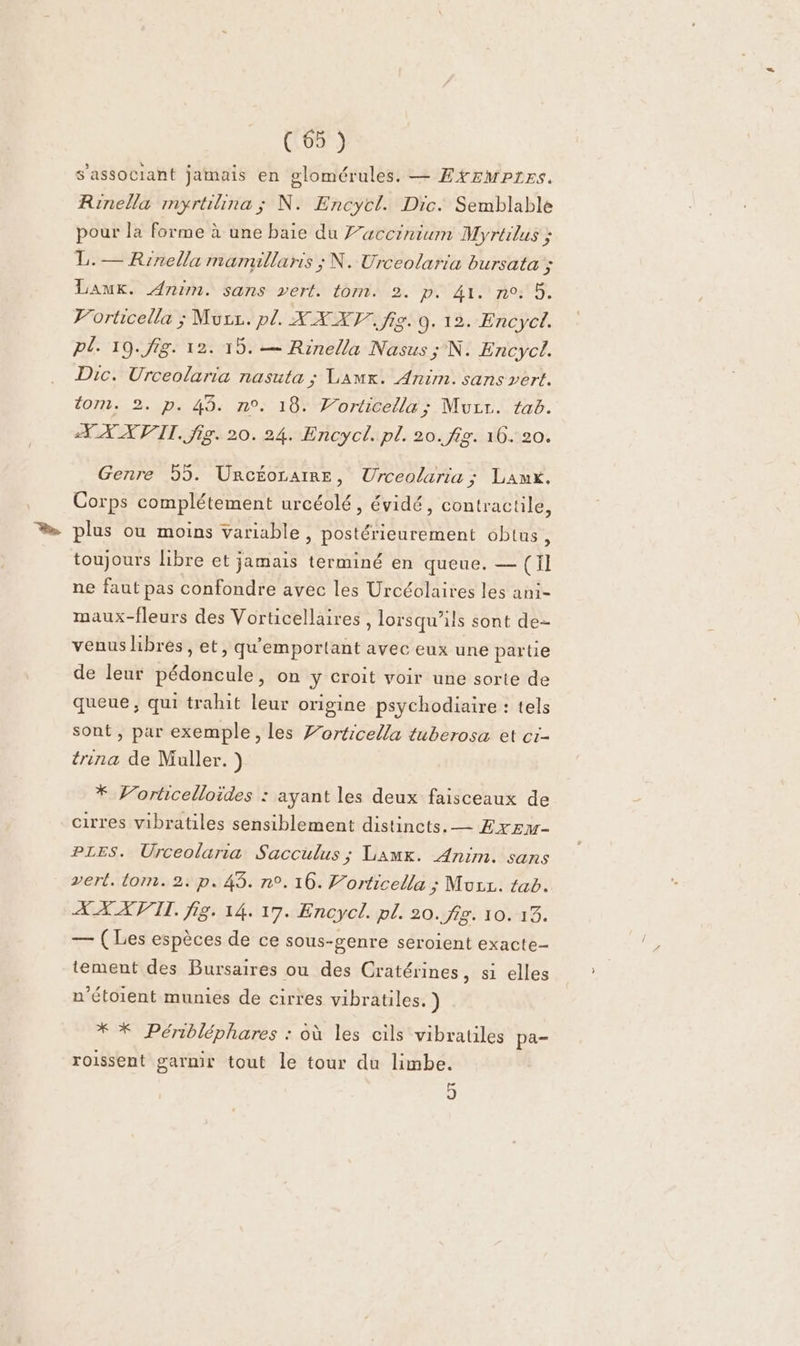 ( 65 )
s'associant jamais en glomérules. — EXEMPLES.
Rinella myrtilina ; N. Encycl. Dic. Semblable
pour la forme à une baie du Vaccinium Myrtilus ;
L. — Rinella mamillaris ; N. Urceolaria bursata ;
LAMK. Anim. sans vert. tom. 2. p. 41. nº. 5.
Vorticella ; MULL. pl. XXXV. fig. 9. 12. Encycl.
pl. 19. fig. 12. 15. — Rinella Nasus ; N. Encycl.
Dic. Urceolaria nasuta ; LAMK. Anim. sans vert.
tom. 2. p. 43. nº. 18. Vorticella ; MULL. tab.
XXXVII. fig. 20. 24. Encycl. pl. 20. fig. 16. 20.
Genre 55. URCÉOLAIRE, Urceolaria ; LAMK.
Corps complétement urcéolé, évidé, contractile,
plus ou moins variable, postérieurement obtus,
toujours libre et jamais terminé en queue. — (Il
ne faut pas confondre avec les Urcéolaires les ani-
maux-fleurs des Vorticellaires, lorsqu'ils sont de-
venus libres, et, qu'emportant avec eux une partie
de leur pédoncule, on y croit voir une sorte de
queue, qui trahit leur origine psychodiaire : tels
sont, par exemple, les Vorticella tuberosa et ci-
trina de Muller. )
* Vorticelloïdes : ayant les deux faisceaux de
cirres vibratiles sensiblement distincts. — EXEM-
PLES. Urceolaria Sacculus ; LAMK. Anim. sans
vert. tom. 2. p. 43. nº. 16. Vorticella ; MULL. tab.
XXXVII. fig. 14. 17. Encycl. pl. 20. fig. 10. 13.
— ( Les espèces de ce sous-genre seroient exacte-
tement des Bursaires ou des Cratérines, si elles
n'étoient munies de cirres vibratiles. )
* * Péribléphares : où les cils vibratiles pa-
roissent garnir tout le tour du limbe.
5